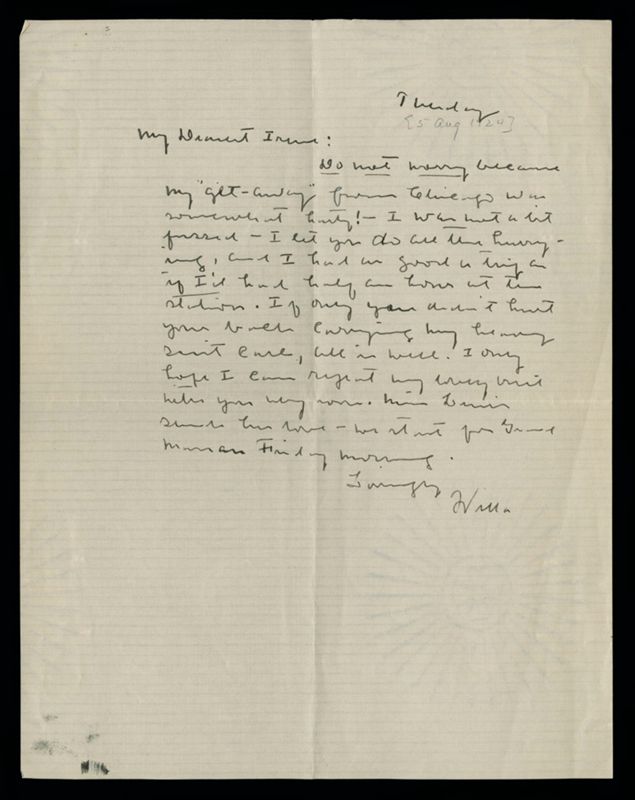 Tuesday
[5 Aug 1924]
My Dearest Irene:
Do not worry because
my "get-away" from Chicago was
somewhat hasty! — I was not a bit
fussed — I let you do all the hurry-
ing, and I had as good a trip as
if I'd had half an hour at the
station. If only you didn't hurt
your back carrying my heavy
suit case, all is well. I only
hope I can repeat my lovely visit
with you very soon. Miss Lewis
sends her love — we start for Grand
Manan Friday morning.
Lovingly
Willa